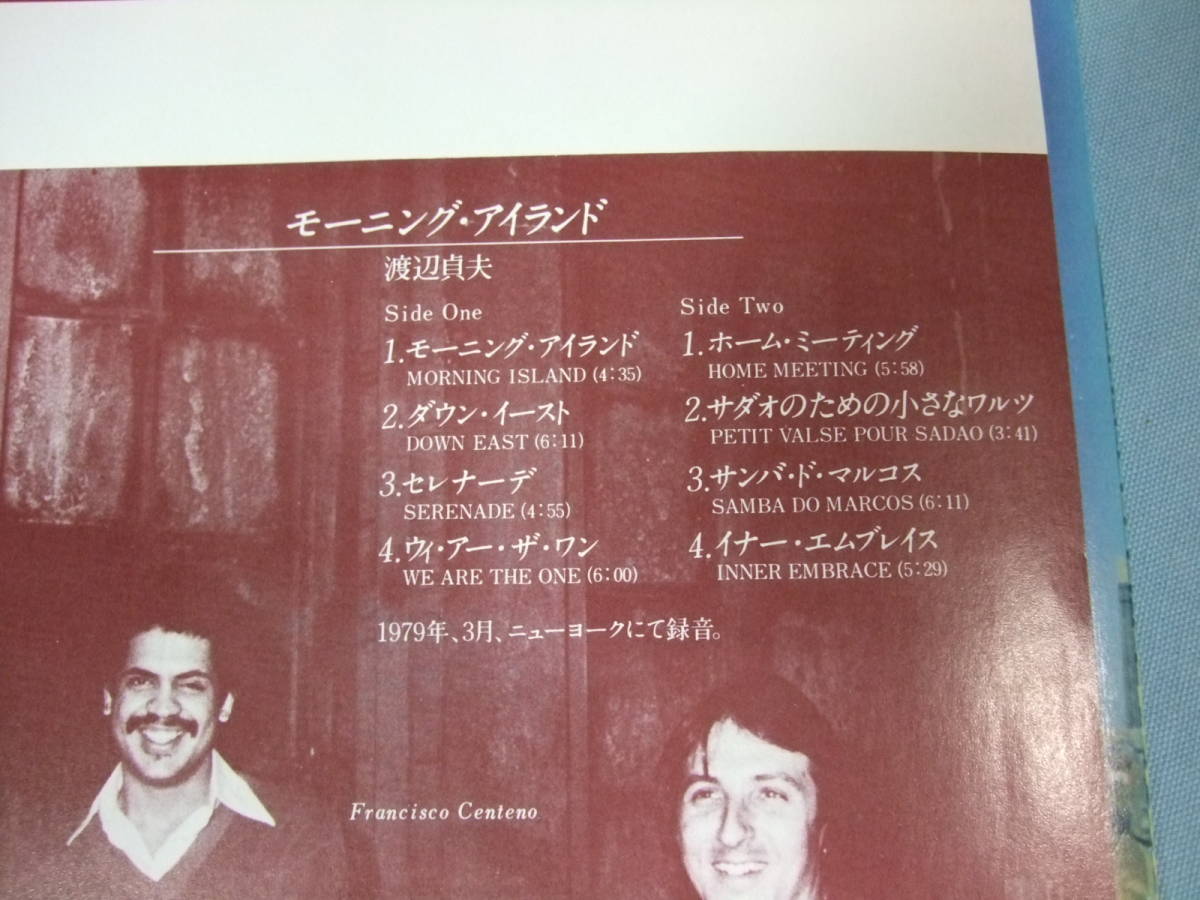 モーニング・アイランド
渡辺貞夫
Side One
1.モーニング・アイランド
MORNING ISLAND (4:35)
2.ダウン・イースト
DOWN EAST (6:11)
3.セレナーデ
SERENADE (4:55)
4.ウィ・アー・ザ・ワン
WE ARE THE ONE (6:00)
Side Two
1.ホーム・ミーティング
HOME MEETING (5:58)
2.サダオのための小さなワルツ
PETIT VALSE POUR SADAO (3:41)
3.サンバ・ド・マルコス
SAMBA DO MARCOS (6:11)
4.イナー・エムブレイス
INNER EMBRACE (5:29)
1979年、3月、ニューヨークにて録音。
Francisco Centeno